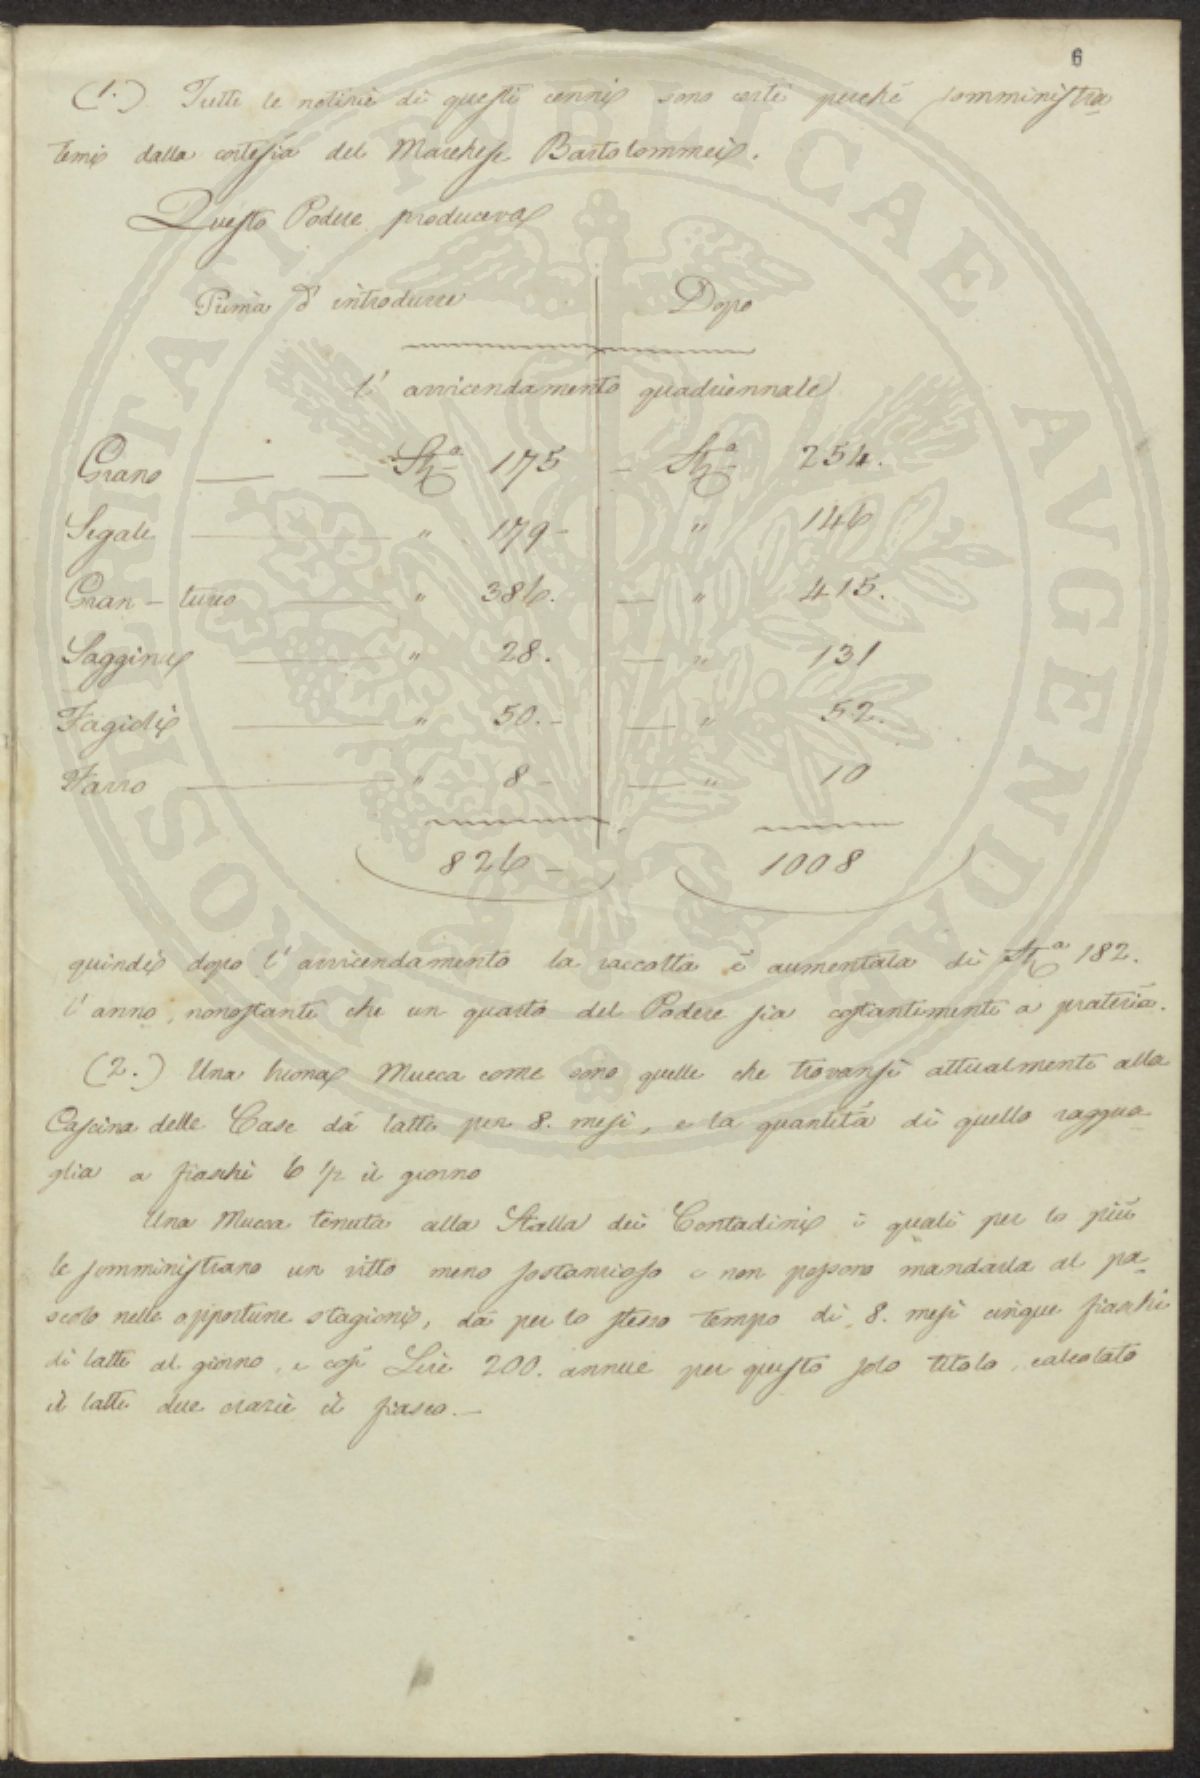 6
(1.) Tutte le notizie di questi cenni sono certe perché somministra=
temi dalla cortesia del Marchese Bartolommei.
Questo Podere produceva
Prima d' introdurre Dopo
l' avvicendamento quadriennale
Grano — — Sta 175 — Sta 254.
Segale — " 179 - " 146
Gran - turco — " 386. — " 415.
Saggina — " 28. — " 131
Fagioli — " 50. - — " 52.
Farro — " 8 - — " 10
826 - 1008
quindi dopo l' avvicendamento la raccolta è aumentata di Sta 182.
l' anno, nonostante che un quarto del Podere sia costantemente a prateria.
(2.) Una buona Mucca come sono quelle che trovansi attualmente alla
Cascina delle Case dá latte per 8. mesi, e la quantitá di quello raggua=
glia a fiaschi 6 1/2 il giorno
Una Mucca tenuta alla Stalla dei Contadini i quali per lo più
le somministrano un vitto meno sostanzioso e non possono mandarla al pa=
scolo nelle opportune stagioni, dá per lo stesso tempo di 8. mesi cinque fiaschi
di latte al giorno, e così Lire 200. annue per questo solo titolo, calcolato
il latte due crazie il fiasco. —
PROSPERITATI PUBLICAE AVGENDAE